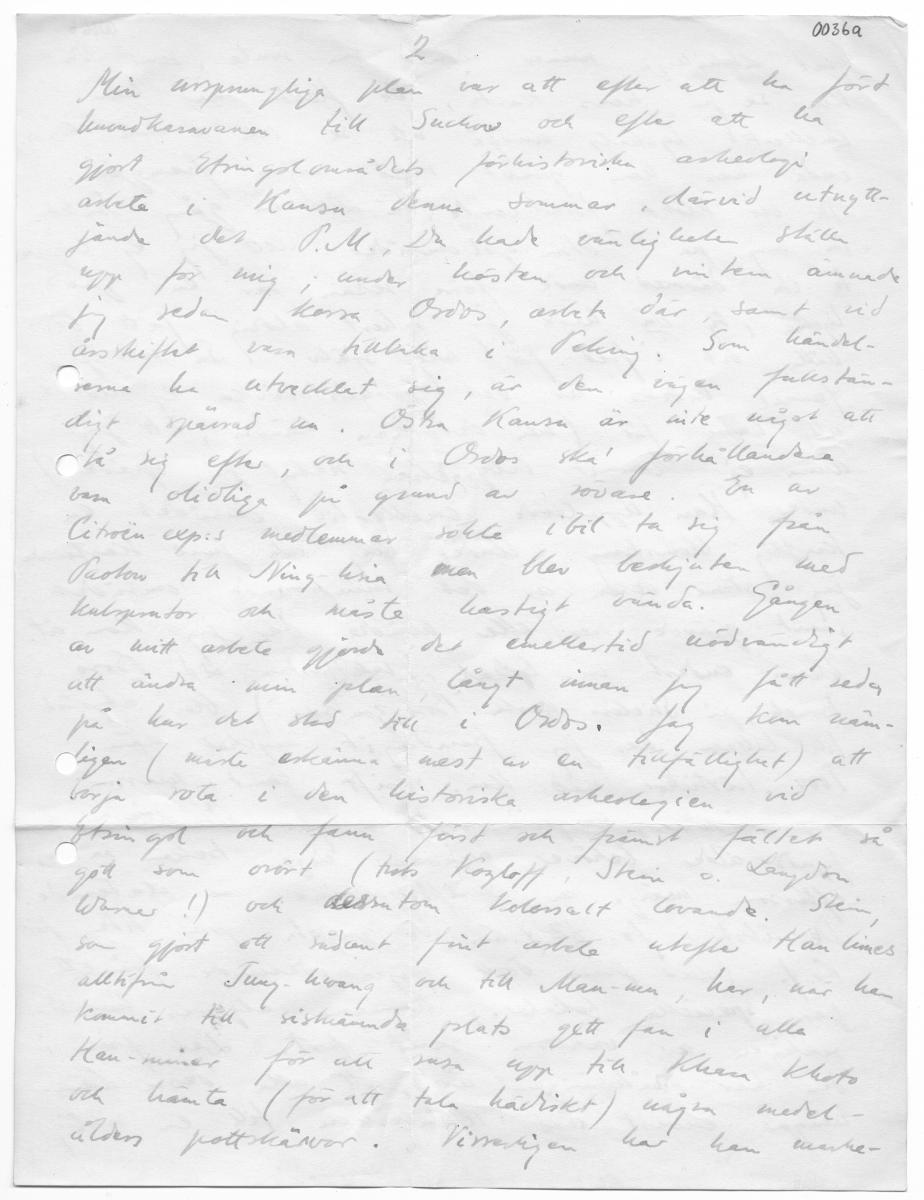 0036a
2
Min ursprungliga plan var att efter att ha fört
huvudkaravanen till Suchow och efter att ha
gjort Etsingolområdets förhistoriska arkeologi
arbeta i Kansu denna sommar, därvid utnytt-
jande det P.M., Du hade vänligheten ställa
upp för mig; under hösten och vintern ämnade
jag sedan korsa Ordos, arbeta där, samt vid
årsskiftet vara tillbaka i Peking. Som händel-
serna ha utvecklat sig, är den vägen fullstän-
digt spärrad nu. Östra Kansu är inte något att
stå efter, och i Ordos ska' förhållandena
vara olidliga på grund av rövare. En av
Citroën exp:s medlemmar sökte i bil ta sig från
Paotow till Ning-hsia men blev beskjuten med
kulsprutor och måste hastigt vända. Gången
av mitt arbete gjorde det emellertid nödvändigt
att ändra min plan, långt innan jag fått reda
på hur det stod till i Ordos. Jag kom näm-
ligen (måste erkänna mest av en tillfällighet) att
börja rota i den historiska arkeologien vid
Etsingol och fann först och främst fältet så
gott som orört (trots Kozloff, Stein o. Langdon
Warner!) och dessutom kolossalt lovande. Stein,
som gjort ett sådant fint arbete utefter Han limes
alltifrån Tung-hwang och till Mao-mu, har, när han
kommit till sistnämnda plats gett fan i alla
Han-ruiner för att rusa upp till Khara Khoto
och hämta (för att tala hädiskt) några medel-
ålders pottskärvor. Visserligen har han marke-